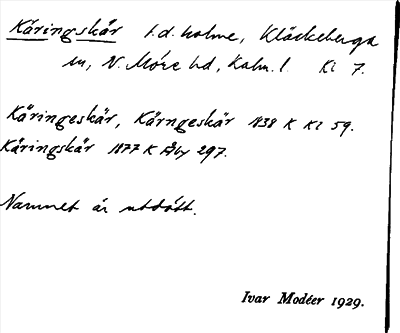 Käringskär f.d. holme, Kläckeberga
sn, N. Möre hd, Kalm. l. Kl 7.
Käringeskär, Kärngeskär 1838 K Kl 59.
Käringskär 1877 K Åby 297.
Namnet är utdött.
Ivar Modéer 1929.